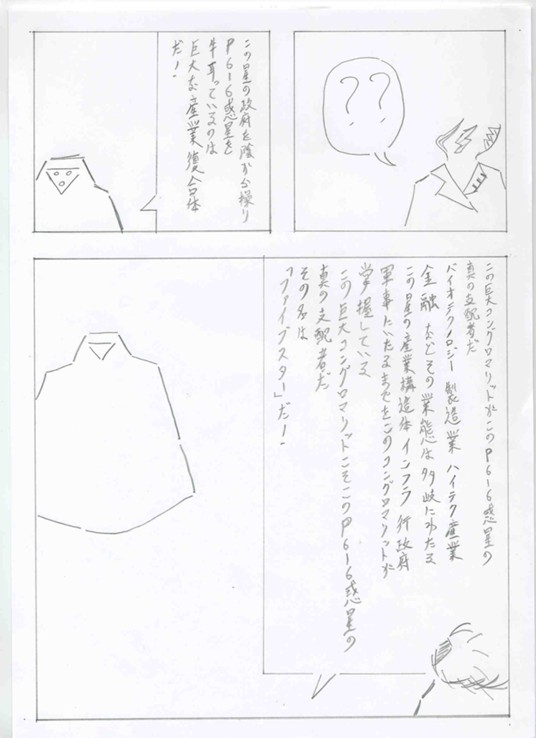 ??
この星の政府を陰から操り
P616惑星を
牛耳っているのは
巨大な産業複合体
だ!
この巨大コングロマリットがこのP616惑星の
真の支配者だ
バイオテクノロジー 製造業 ハイテク産業
金融 などその業態は多岐にわたる
この星の産業構造体 インフラ 行政府
軍事にいたるまでをこのコングロマリットが
掌握している
この巨大コングロマリットこそこのP616惑星の
真の支配者だ
その名は
「ファイブスター」だ!